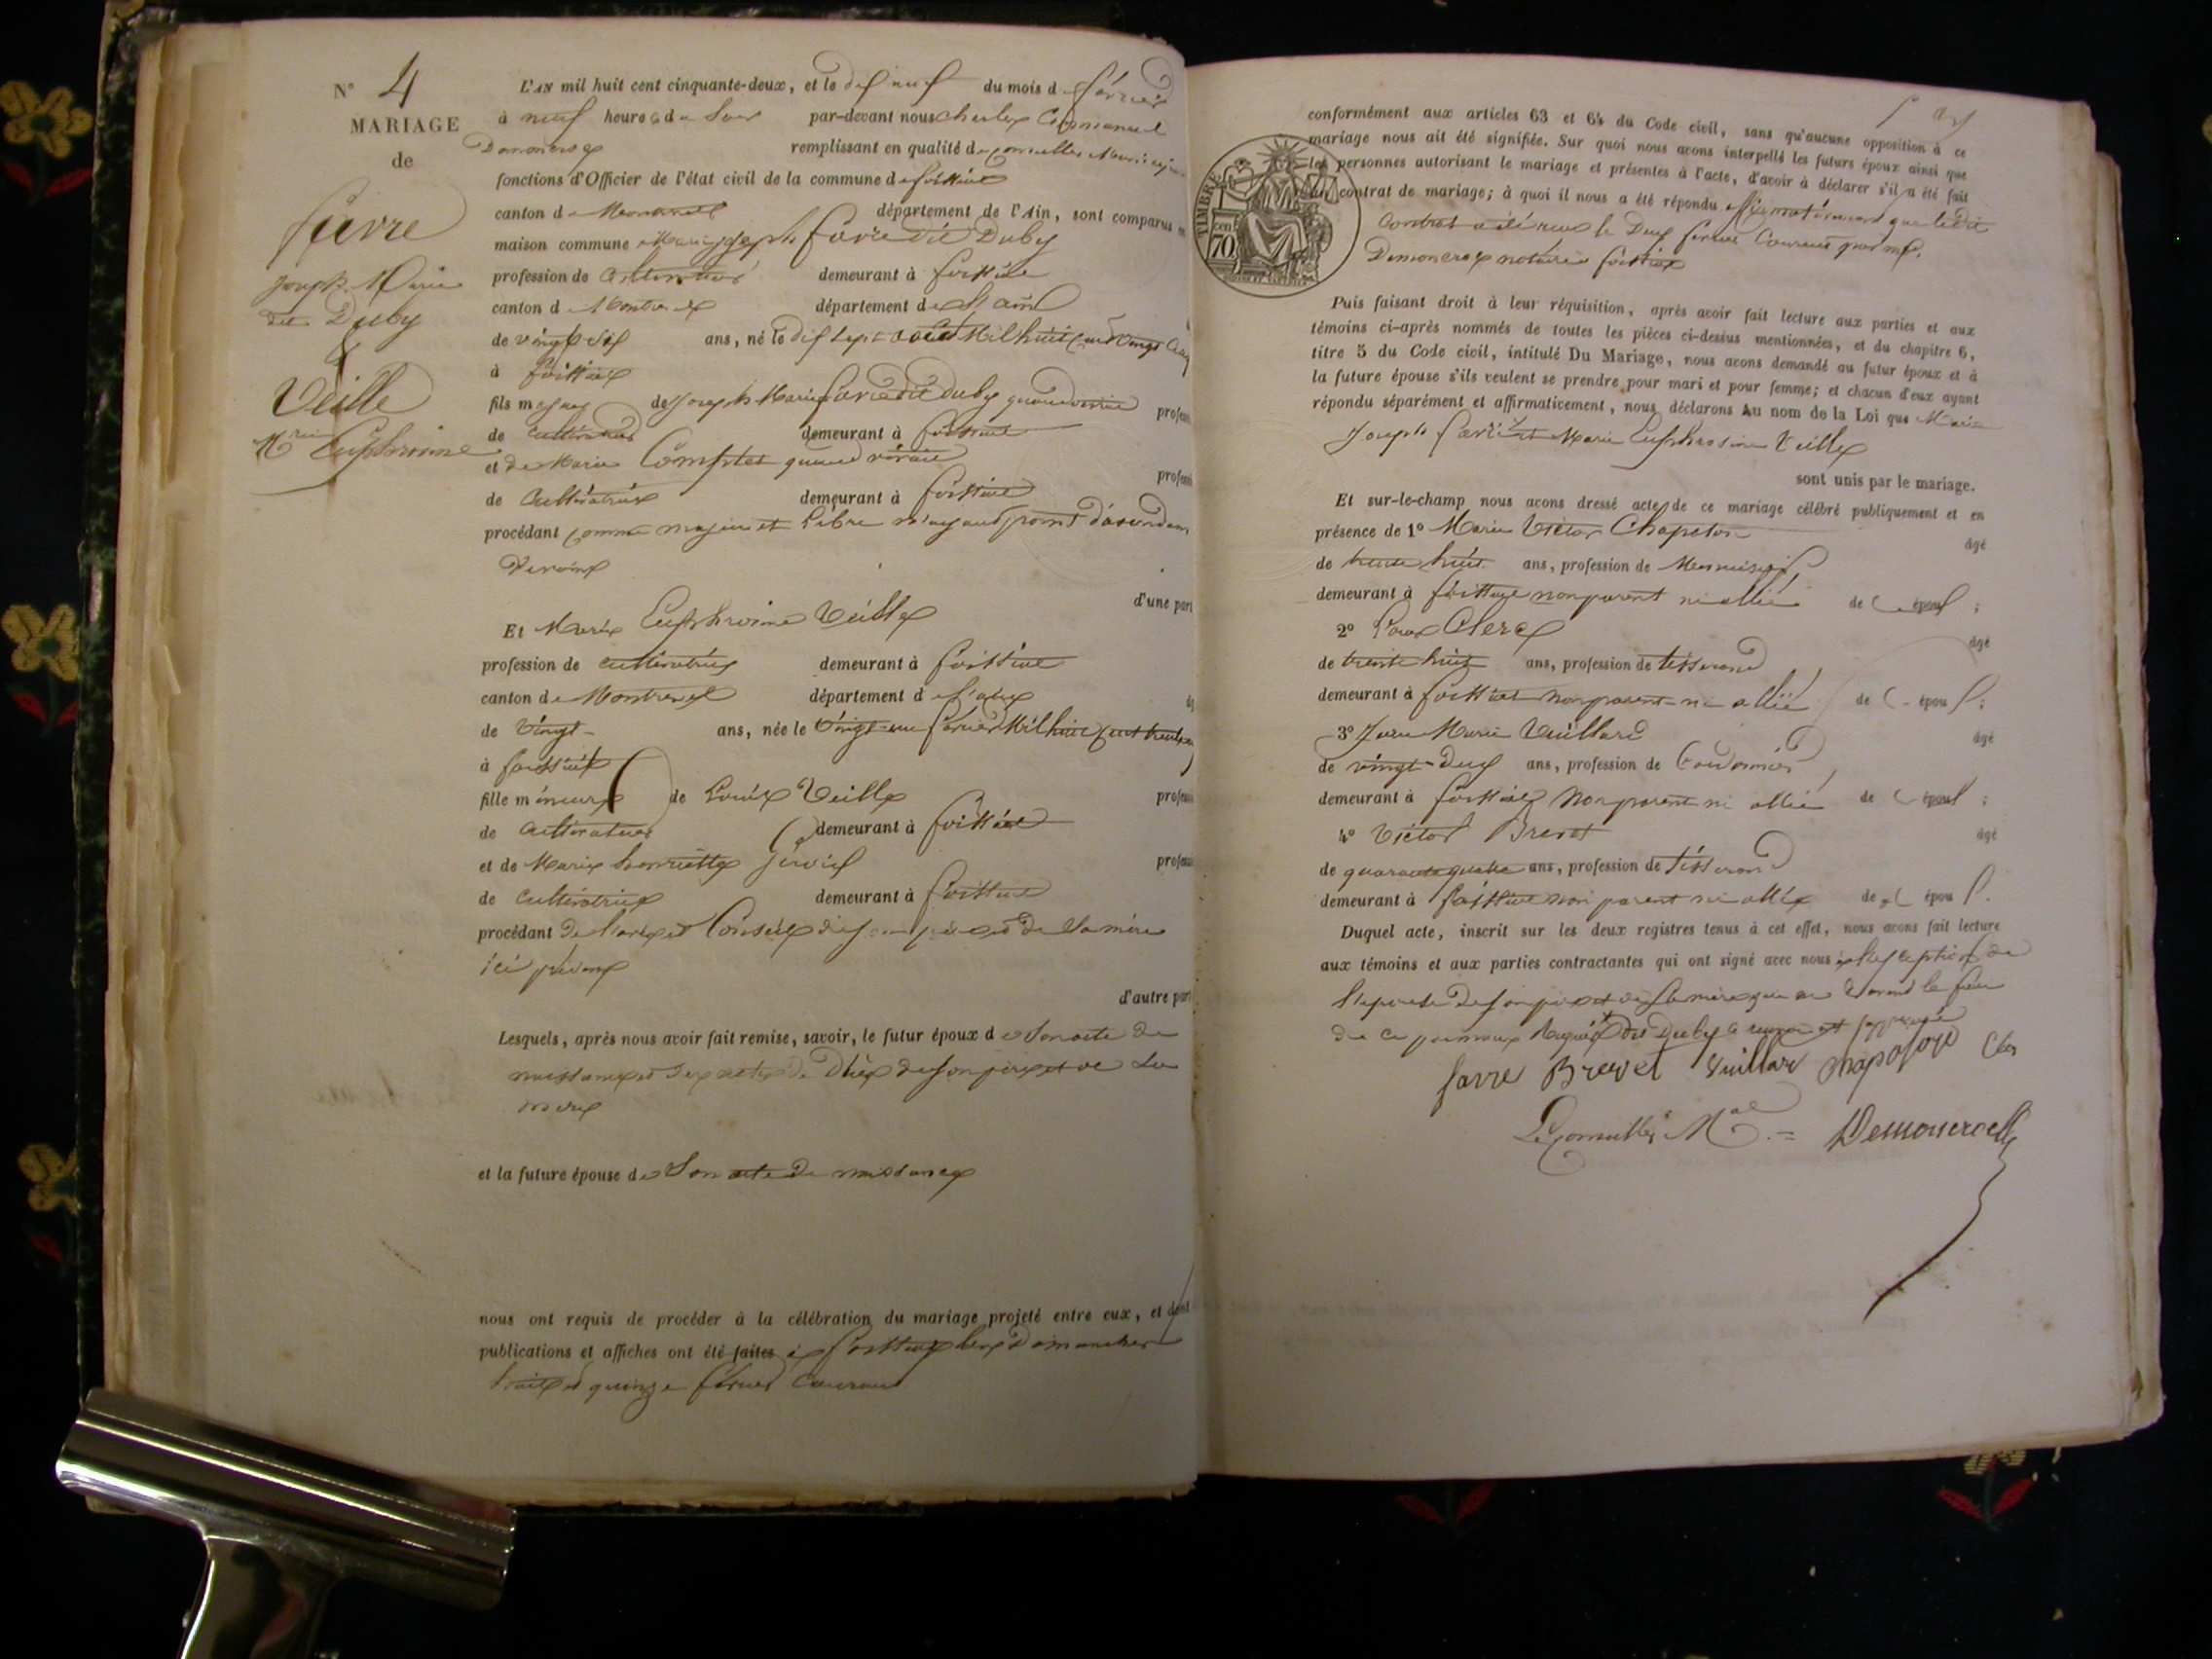 N° 4
MARIAGE
de
favre
Joseph Marie
dit Duby
&
Veille
Mrie Euphrosine
L'AN mil huit cent cinquante-deux, et le dix neuf du mois de février
à neuf heures du Soir par-devant nous Charles Emmanuel
remplissant en qualité de conseiller
fonctions d'Officier de l'état civil de la commune de foissiat
canton de Montrevel département de l'Ain, sont comparus en
maison commune Marie Joseph favre dit Duby
profession de Cultivateur demeurant à foissiat
canton de Montrevel département de l'ain
de vingt six ans, né le dix sept août Mil huit cent vingt cinq
à foissiat
fils majeur de Joseph Marie favre dit duby quand vivait profession
de cultivateur demeurant à foissiat
et de Marie quand vivait profession
de Cultivatrice demeurant à foissiat
procédant comme majeur et libre n'ayant point d'ascendans
d'une part
Et Marie Euphrosine Veille
profession de cultivatrice demeurant à foissiat
canton de Montrevel département de l'ain
de vingt ans, née le vingt-un février Mil huit cent trente
à foissiat
fille mineure de Louis Veille profession
de Cultivateur demeurant à foissiat
et de Marie henriette profession
de Cultivatrice demeurant à foissiat
procédant de l'avis et Conseil de son père et de sa mère
ici présens
d'autre part
Lesquels, après nous avoir fait remise, savoir, le futur époux de Son acte de
naissance et des actes de décès de son père et de sa
mère
et la future épouse de Son acte de naissance
nous ont requis de procéder à la célébration du mariage projeté entre eux, et dont
publications et affiches ont été faites à foissiat les Dimanches
huit et quinze février Courant
conformément aux articles 63 et 64 du Code civil, sans qu'aucune opposition à ce
mariage nous ait été signifiée. Sur quoi nous avons interpellé les futurs époux ainsi que
les personnes autorisant le mariage et présentes à l'acte, d'avoir à déclarer s'il a été fait
un contrat de mariage; à quoi il nous a été répondu affirmativement que le dit
Contrat a été reçu le Deux février Courant par me
notaire à foissiat
TIMBRE
70 cen
Puis faisant droit à leur réquisition, après avoir fait lecture aux parties et aux
témoins ci-après nommés de toutes les pièces ci-dessus mentionnées, et du chapitre 6,
titre 5 du Code civil, intitulé Du Mariage, nous avons demandé au futur époux et à
la future épouse s'ils veulent se prendre pour mari et pour femme; et chacun d'eux ayant
répondu séparément et affirmativement, nous déclarons Au nom de la Loi que Marie
Joseph favre et Marie Euphrosine Veille
sont unis par le mariage.
Et sur-le-champ nous avons dressé acte de ce mariage célébré publiquement et en
présence de 1° Marie Victor Chapeton âgé
de trente huit ans, profession de Menuisier
demeurant à foissiat non parent ni allié de époux ;
2° Louis Clerc âgé
de trente huit ans, profession de tisserand
demeurant à foissiat non parent ni allié de époux ;
3° Jean Marie Vuillard âgé
de vingt-deux ans, profession de Cordonnier
demeurant à foissiat non parent ni allié de époux ;
4° Victor Brevet âgé
de quarante quatre ans, profession de tisserand
demeurant à foissiat non parent ni allié de époux.
Duquel acte, inscrit sur les deux registres tenus à cet effet, nous avons fait lecture
aux témoins et aux parties contractantes qui ont signé avec nous à l'exception de
l'épouse de son père et de sa mère
dit Duby le renvoi est approuvé
favre Brevet Vuillar